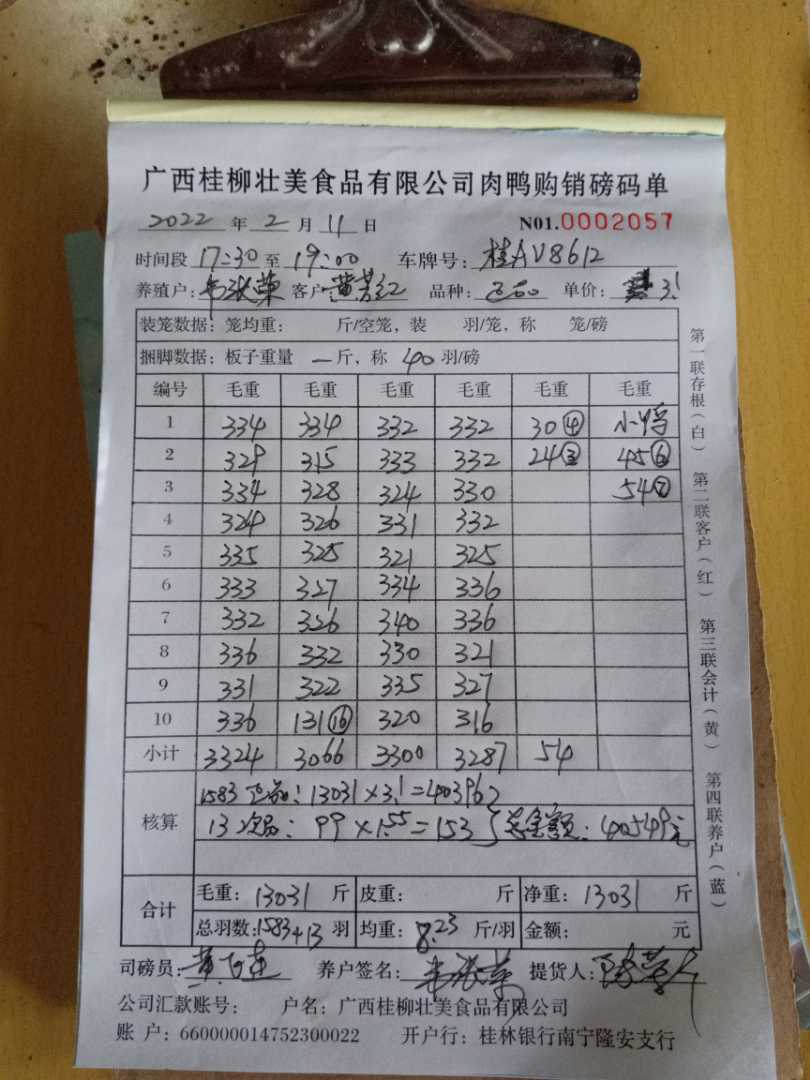 广西桂柳壮美食品有限公司肉鸭购销磅码单
2022 年 2 月 11 日 N01.0002057
时间段 17:30 至 19:00 车牌号: 桂AV8612
养殖户: 客户 黄芳红 品种: 正品 单价: 3.1
装笼数据: 笼均重: 斤/空笼, 装 羽/笼, 称 笼/磅
捆脚数据: 板子重量 一斤, 称 40 羽/磅
编号 毛重 毛重 毛重 毛重 毛重 毛重
1 334 334 332 332 30④ 小鸭
2 329 315 333 332 24③ 45⑥
3 334 328 324 330 54⑦
4 324 326 331 332
5 335 325 321 325
6 333 327 334 336
7 332 326 340 336
8 336 332 330 321
9 331 322 335 327
10 336 131⑯ 320 316
小计 3324 3066 3300 3287 54
核算 1583 正品: 13031×3.1=40396
13 次品: 99×1.55=153 } 总金额: 40549元
合计 毛重: 13031 斤 皮重: 斤 净重: 13031 斤
总羽数: 1583+13 羽 均重: 8.23 斤/羽 金额: 元
司磅员: 养户签名: 提货人:
公司汇款账号: 户名: 广西桂柳壮美食品有限公司
账 户: 660000014752300022 开户行: 桂林银行南宁隆安支行
第一联存根(白) 第二联客户(红) 第三联会计(黄) 第四联养户(蓝)